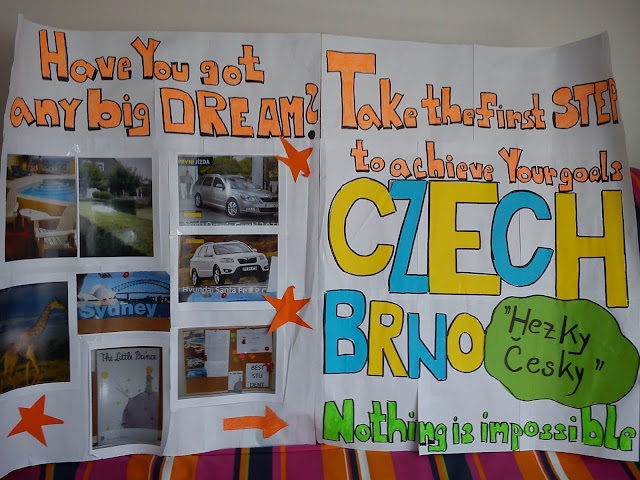 Have You got
any big DREAM?
PRVNÍ JÍZDA
Hyundai Santa Fe
Sydney
The Little Prince
BEST
STU
DENT
Take the first STEP
to achieve Your goals
CZECH
BRNO
"Hezky
Česky"
Nothing is impossible